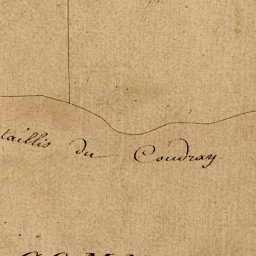 taillis du Coudray